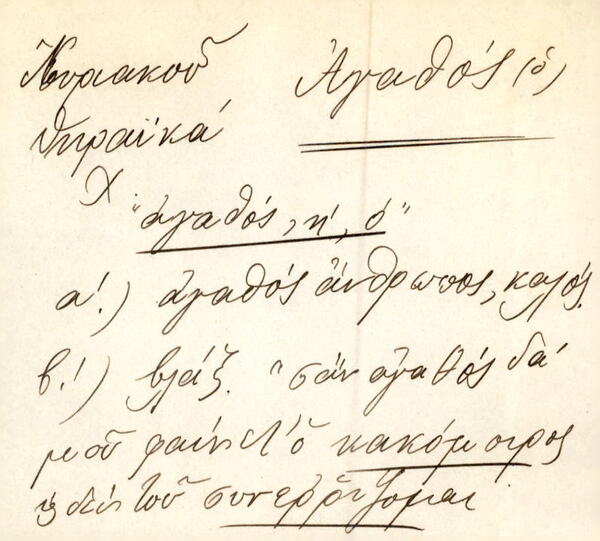 Κυριακοῦ Ἀγαθός (ὁ)
Θηραϊκά
χ
"ἀγαθός, ή, ό"
α'.) ἀγαθός ἄνθρωπος, καλός.
β'.) βλάξ. "σάν ἀγαθός δά
μοῦ φαίνετ' ὁ κακόμοιρος
δέν τοῦ συνερρίζομαι